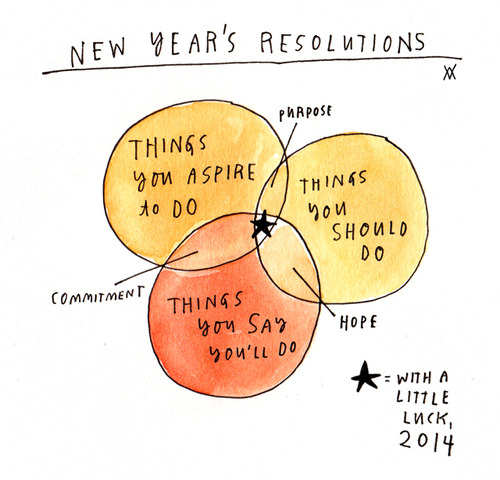 NEW YEAR'S RESOLUTIONS
PURPOSE
THINGS
YOU ASPIRE
to DO
THINGS
YOU
SHOULD
DO
COMMITMENT
THINGS
YOU SAY
YOU'LL DO
HOPE
= WITH A
LITTLE
LUCK,
2014